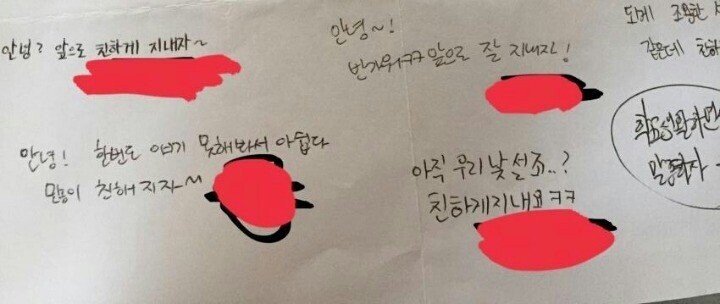 안녕? 앞으로 친하게 지내자~
안녕~!
반가워ㅋㅋ 앞으로 잘 지내자!
도메 조용한
같은데 친하
안녕! 한번도 얘기 못해봐서 아쉽다
친해지자~
아직 우리 낯설죠..?
친하게지내요ㅋㅋ
학교생활하면
말